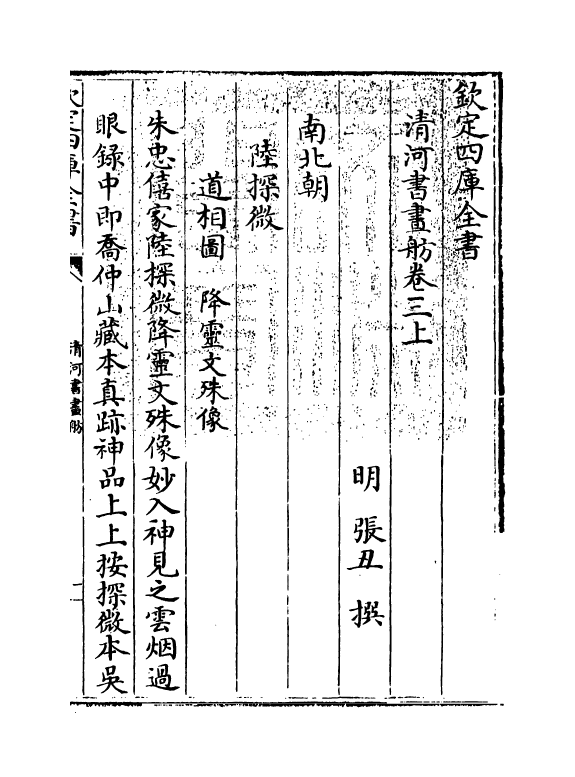 欽定四庫全書
清河書畫舫卷三上
明 張丑 撰
南北朝
陸探微
道相圖 降靈文殊像
朱忠僖家陸探微降靈文殊像妙入神見之雲烟過
眼録中即喬仲山藏本真跡神品上上按探微本吳
欽定四庫全書
清河書畫舫
一